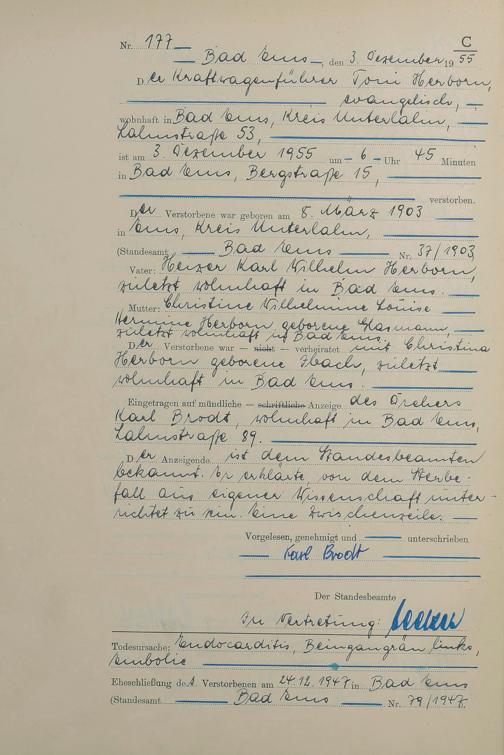 C
Nr. 177
Bad Ems, den 3. Dezember 1955
Der Kraftwagenführer Toni Herborn,
evangelisch,
wohnhaft in Bad Ems, Kreis Unterlahn,
Lahnstraße 53,
ist am 3. Dezember 1955 um 6 Uhr 45 Minuten
in Bad Ems, Bergstraße 15,
verstorben.
Der Verstorbene war geboren am 8. März 1903
in Ems, Kreis Unterlahn,
(Standesamt Bad Ems Nr. 37/1903,
Vater: Heizer Karl Wilhelm Herborn,
zuletzt wohnhaft in Bad Ems.
Mutter: Christine Wilhelmine Louise
Hermine Herborn geborene Glasmann,
zuletzt wohnhaft in Bad Ems.
Der Verstorbene war — nicht — verheiratet mit Christina
Herborn geborene Ibach, zuletzt
wohnhaft in Bad Ems.
Eingetragen auf mündliche — schriftliche Anzeige des
Karl Brodt, wohnhaft in Bad Ems,
Lahnstraße 89.
Der Anzeigende ist dem Standesbeamten
bekannt. Er erklärte, von dem Sterbe-
fall aus eigener Wissenschaft unter-
richtet zu sein. Eine Zwischenzeile.
Vorgelesen, genehmigt und unterschrieben
Karl Brodt
Der Standesbeamte
In Vertretung:
Todesursache: Endocarditis, Beingangrän links,
Embolie
Eheschließung des Verstorbenen am 24.12.1947 in Bad Ems
(Standesamt Bad Ems Nr. 79/1947.